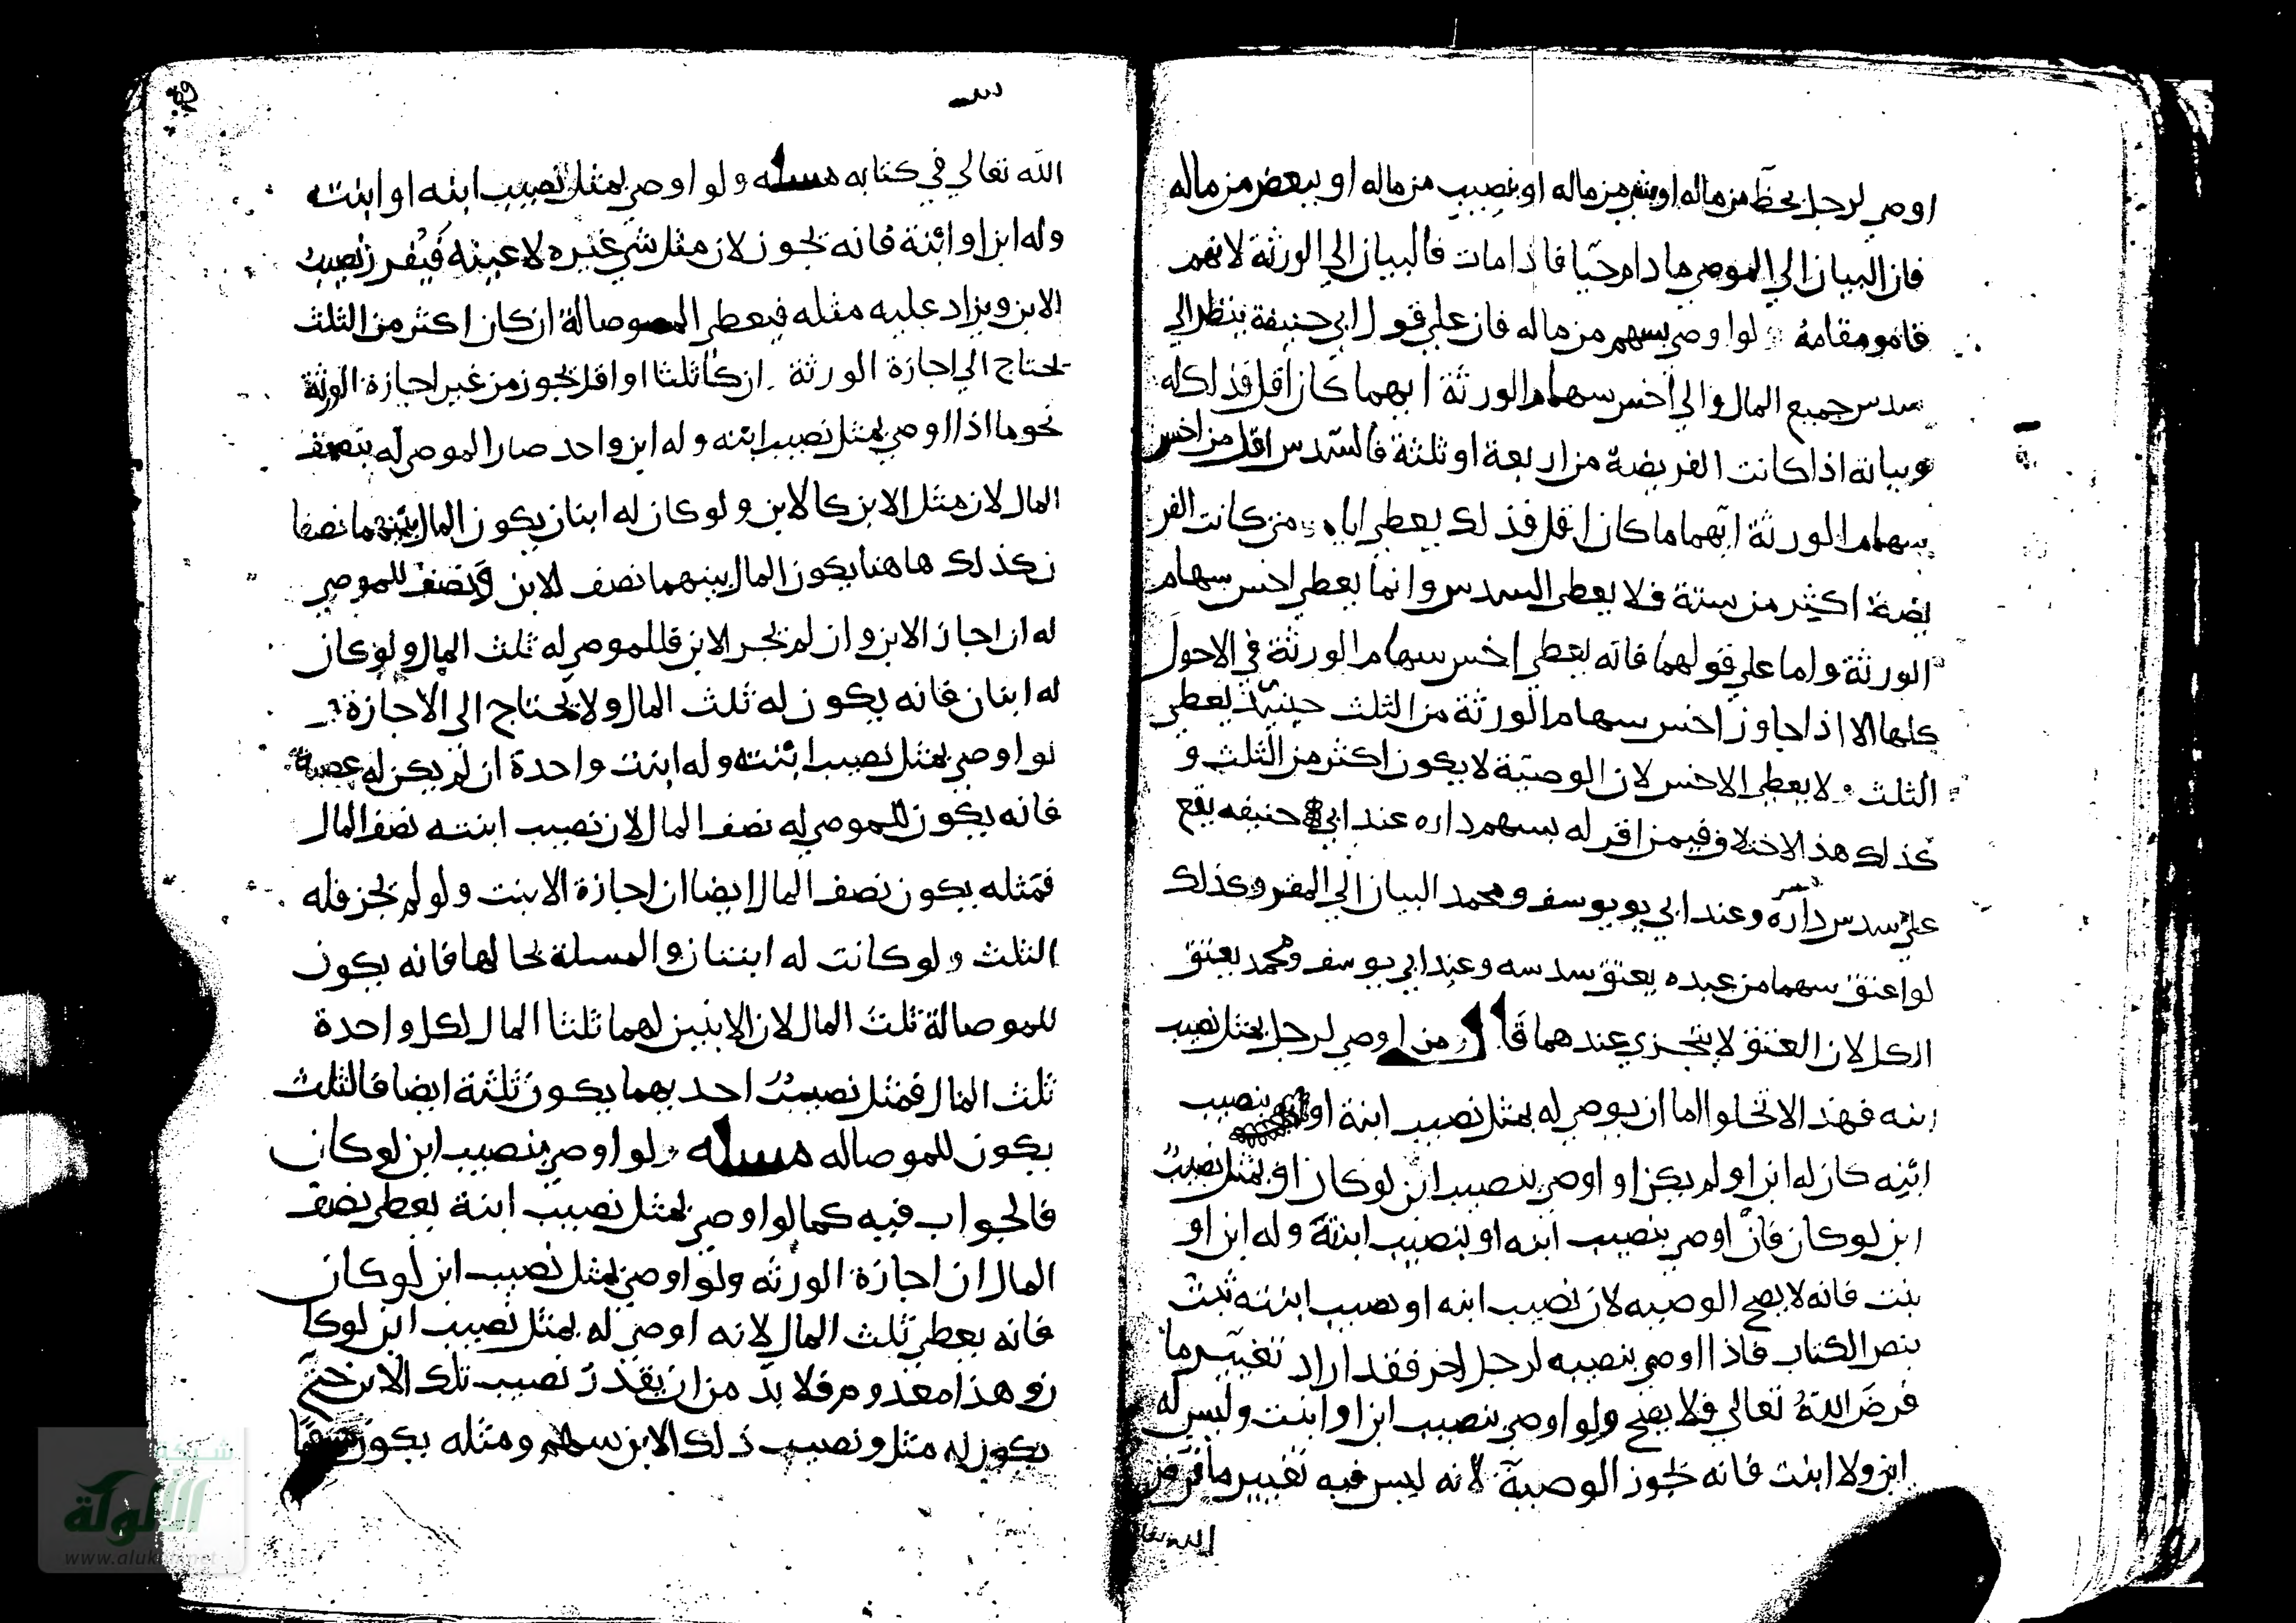 اوصي لرجل بحظ من ماله او بشي من ماله او بنصيب من ماله او ببعض من ماله
فان البيان الي الموصي ما دام حيا فاذا مات فالبيان الي الورثة لانهم
قامو مقامه ولو اوصي بسهم من ماله فان علي قول ابي حنيفة ينظر الي
سدس جميع المال والي اخس سهام الورثة ايهما كان اقل فذلك له
وبيانه اذا كانت الفريضة من اربعة او ثلثة فالسدس اقل من اخس
سهام الورثة ايهما ما كان اقل فذلك يعطي اياه من كانت الفر
يضة اكثر من ستة فلا يعطي السدس وانما يعطي اخس سهام
الورثة واما علي قولهما فانه يعطي اخس سهام الورثة في الاحول
كلها الا اذا جاوز اخس سهام الورثة من الثلث حينئذ يعطي
الثلث ولا يعطي الاخس لان الوصية لا يكون اكثر من الثلث و
كذلك هذا الاختلاف فيمن اقر له بسهم داره عند ابي حنيفه يقع
علي سدس داره وعند ابي يو يوسف ومحمد البيان الي المقر وكذلك
لو اعتق سهما من عبده يعتق سدسه وعند ابي يوسف ومحمد يعتق
الكل لان العتق لا يتجزي عندهما قال ومن اوصي لرجل بمثل نصيب
ابنه فهذا لا تخلوا اما ان يوصي له بمثل نصيب ابنة او بنصيب
ابنه كان له ابن او لم يكن او اوصي بنصيب ابن لو كان او بمثل نصيب
ابن لو كان فان اوصي بنصيب ابنه او بنصيب ابنتة وله ابن او
بنت فانه لا يصح الوصيه لان نصيب ابنه او نصيب ابنته ثبت
بنص الكتاب فاذا اوصي بنصيبه لرجل اخر فقد اراد تغيير ما
فرض الله تعالي فلا يصح ولو اوصي بنصيب ابن او ابنت وليس له
ابن ولا ابنت فانه تجوز الوصية لانه ليس فيه تغيير ما فرض
الله تعا
الله تعالي في كتابه مسله ولو اوصي بمثل نصيب ابنه او ابنته
وله ابن او ابنة فانه تجوز لان مثل شي غيره لا عينه فيفرز نصيب
الابن ويزاد عليه مثله فيعطي الموصاله ان كان اكثر من الثلث
يحتاج الي اجازة الورثة ان كا ثلثا او اقل تجوز من غير اجازة الورثة
نحو ما اذا اوصي بمثل نصيب ابنه وله ابن واحد صار الموصي له بنصف
المال لان مثل الابن كالابن ولو كان له ابنان يكون المال بينهما نصفا
ن كذلك هاهنا يكون المال بينهما نصف للابن ونصف للموصي
له ان اجاز الابن وان لم تجر الابن فللموصي له ثلث المال ولو كان
له ابنان فانه يكون له ثلث المال ولا يحتاج الي الاجازة و
لو اوصي بمثل نصيب ابنته وله ابنت واحدة ان لم يكن له عصبة
فانه يكون للموصي له نصف المال لان نصيب ابنته نصف المال
فمثله يكون نصف المال ايضا ان اجازة الابنت ولو لم تجز فله
الثلث ولو كانت له ابنتان والمسلة بحالها فانه يكون
للموصالة ثلث المال لان الابنين لهما ثلثا المال لكل واحدة
ثلث المال فمثل نصيب احديهما يكون ثلثة ايضا فالثلث
يكون للموصاله مسله ولو اوصي بنصيب ابن لو كان
فالجواب فيه كما لو اوصي بمثل نصيب ابنة يعطي نصف
المال ان اجازة الورثه ولو اوصي بمثل نصيب ابن لو كان
فانه يعطي ثلث المال لانه اوصي له بمثل نصيب ابن لو كا
ن وهذا معدوم فلا بد من ان يقدر نصيب تلك الابن حتي
يكون له مثل ونصيب ذلك الابن سهم ومثله يكون
شبكة
الألوكة
www.alukah.net